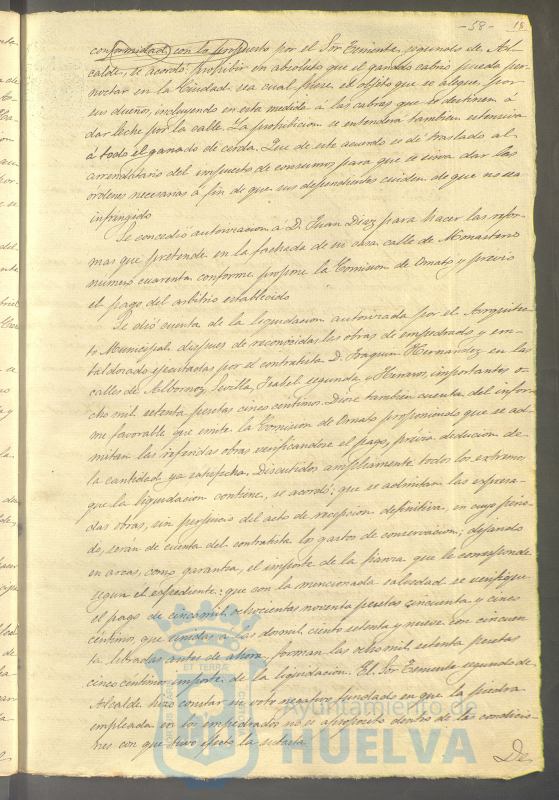 - 58 - 18
conformidad con lo propuesto por el Sor Teniente segundo de Al-
calde, se acordó prohibir en absoluto que el ganado cabrio pueda per-
noctar en la Ciudad sea cual fuere el objeto que se alegue por
sus dueños, incluyendo en esta medida á las cabras que se destinen á
dar leche por la calle. La prohibicion se entenderá tambien estensiva
á todo el ganado de cerda. Que de este acuerdo se dé traslado al
arrendatario del impuesto de consumos para que se sirva dar las
ordenes necesarias á fin de que sus dependientes cuiden de que no sea
infringido
Se concedió autorizacion á D. Juan Diaz para hacer las refor-
mas que pretende en la fachada de su casa calle de Monasterio
numero cuarenta conforme propone la Comision de Ornato y previo
el pago del arbitrio establecido
Se dió cuenta de la liquidacion autorizada por el Arquitec-
to Municipal despues de reconocidas las obras de empedrado y em-
baldosado ejecutadas por el contratista D. Joaquin Hernandez en las
calles de Albornoz, Sevilla, Isabel segunda y Herreros, importantes o-
cho mil setenta pesetas cinco centimos. Diose tambien cuenta del infor-
me favorable que emite la Comision de Ornato proponiendo que se ad-
mitan las referidas obras verificandose el pago, previa deduccion de
la cantidad ya satisfecha. Discutidos ampliamente todos los extremos
que la liquidacion contiene, se acordó: que se admitan las expresa-
das obras, sin perjuicio del acto de recepcion definitiva, en cuyo perio-
do, serán de cuenta del contratista los gastos de conservacion; dejando
en arcas, como garantia, el importe de la fianza que le corresponde
segun el expediente: que con la mencionada salvedad se verifique
el pago de cinco mil ochocientas noventa pesetas cincuenta y cinco
centimos, que unidas á las dos mil ciento setenta y nueve con cincuen-
ta, libradas antes de ahora, forman las ocho mil setenta pesetas
cinco centimos importe de la liquidacion. El Sor Teniente segundo de
Alcalde hizo constar su voto negativo fundado en que la piedra
empleada en los empedrados no es aproposito dentro de las condicio-
nes con que tuvo efecto la subasta
De
ET TERRAE
Ayuntamiento de
HUELVA